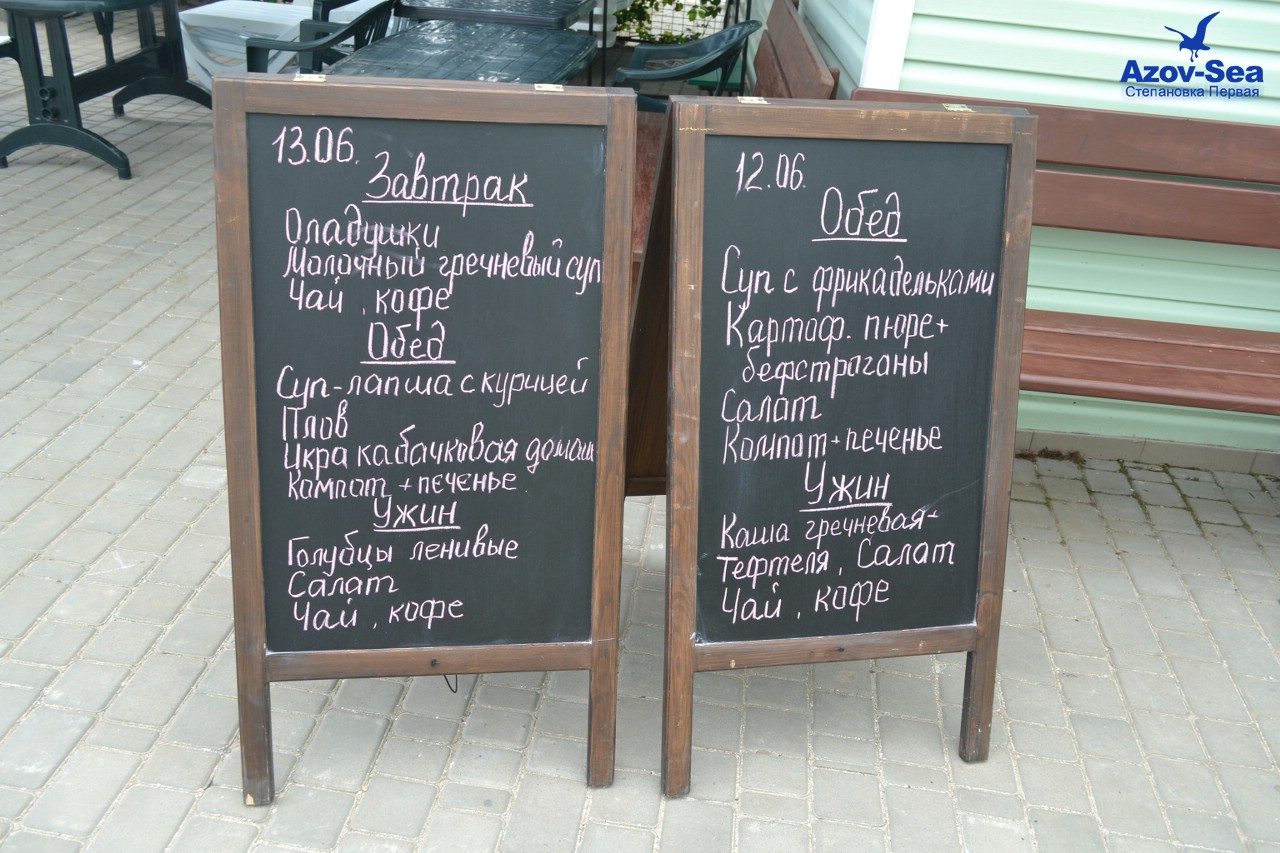 13.06.
Завтрак
Оладушки
Молочный гречневый суп
Чай, кофе
Обед
Суп-лапша с курицей
Плов
Икра кабачковая домаш
Компот + печенье
Ужин
Голубцы ленивые
Салат
Чай, кофе
12.06.
Обед
Суп с фрикадельками
Картоф. пюре+
бефстраганы
Салат
Компот+печенье
Ужин
Каша гречневая-
тефтеля, Салат
Чай, кофе
Azov-Sea
Степановка Первая